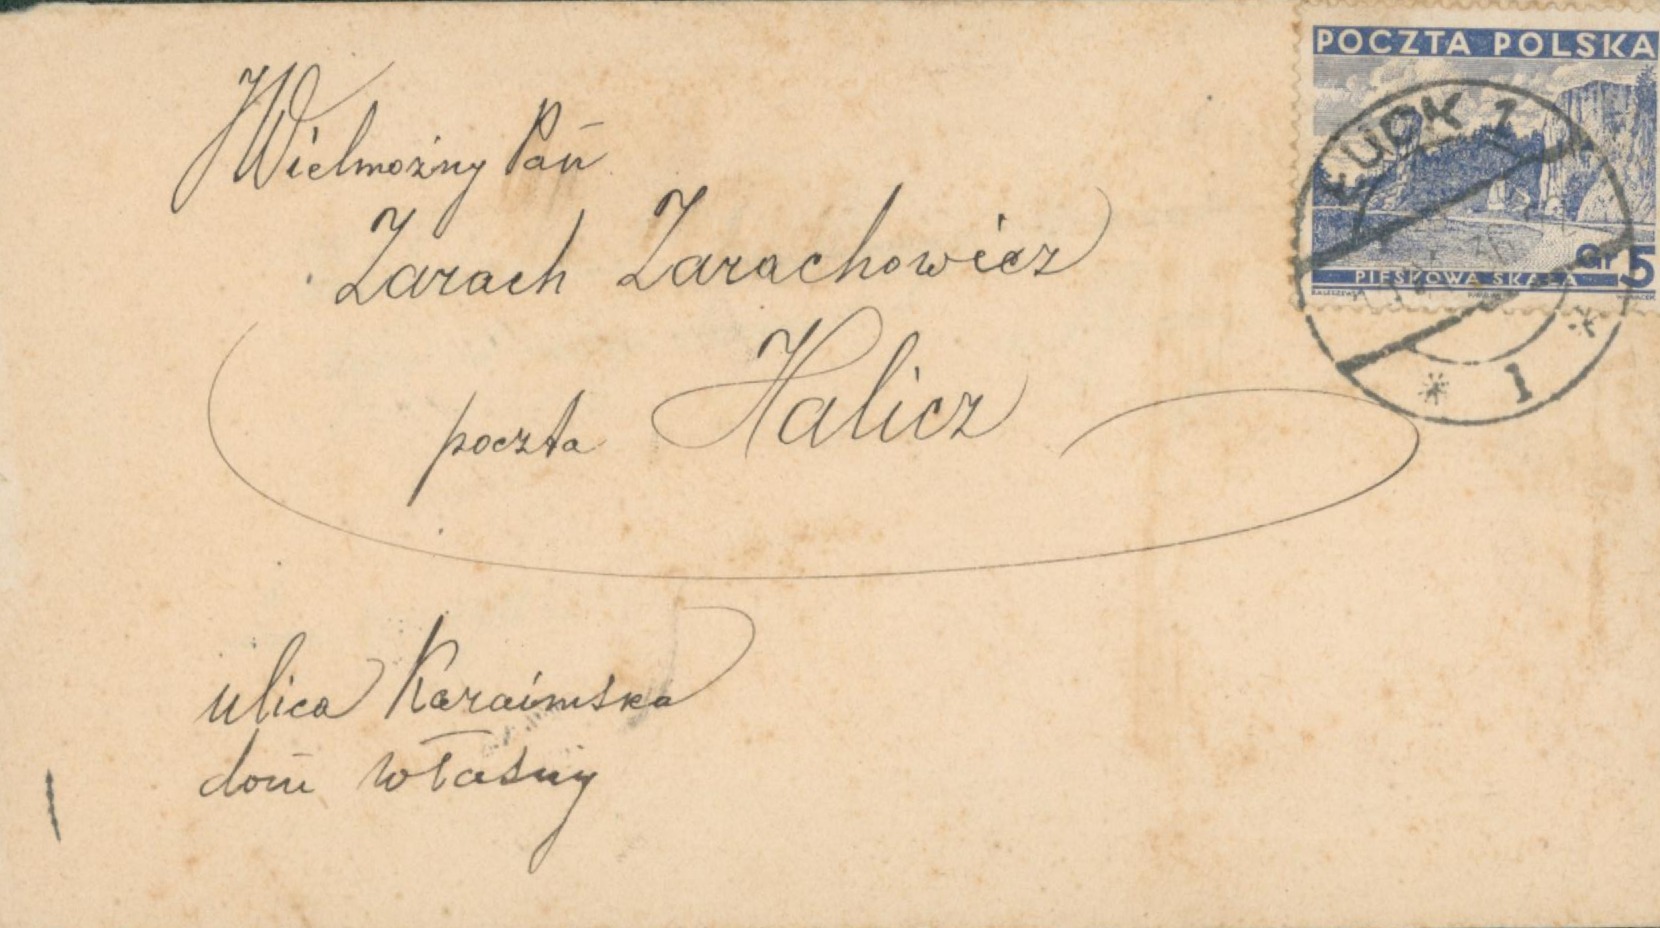 Wielmożny Pan
Zarach Zarachowicz
poczta Halicz
ulica Karaimska
dom własny
POCZTA POLSKA
Gr 5
PIESKOWA SKAŁA
ŁUCK 1
36
* 1 *